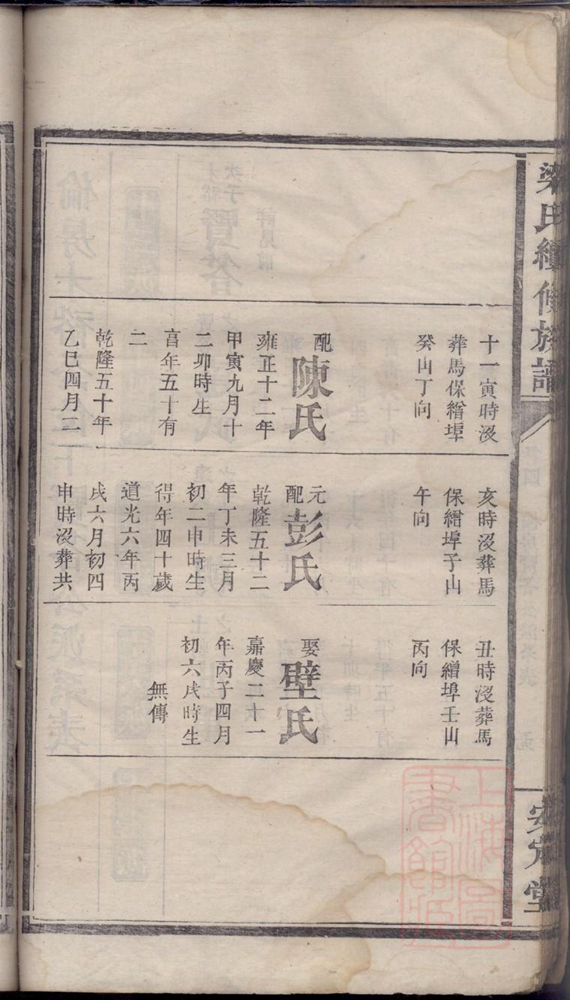 梁氏續修族譜
安定堂
十一寅時沒
葬馬保繒埠
癸山丁向
配陳氏
雍正十二年
甲寅九月十
二卯時生
享年五十有
二
乾隆五十年
乙巳四月二
亥時沒葬馬
保繒埠子山
午向
元配彭氏
乾隆五十二
年丁未三月
初二申時生
得年四十歲
道光六年丙
戌六月初四
申時沒葬共
丑時沒葬馬
保繒埠壬山
丙向
娶壁氏
嘉慶二十一
年丙子四月
初六戌時生
無傳
上海圖書館藏